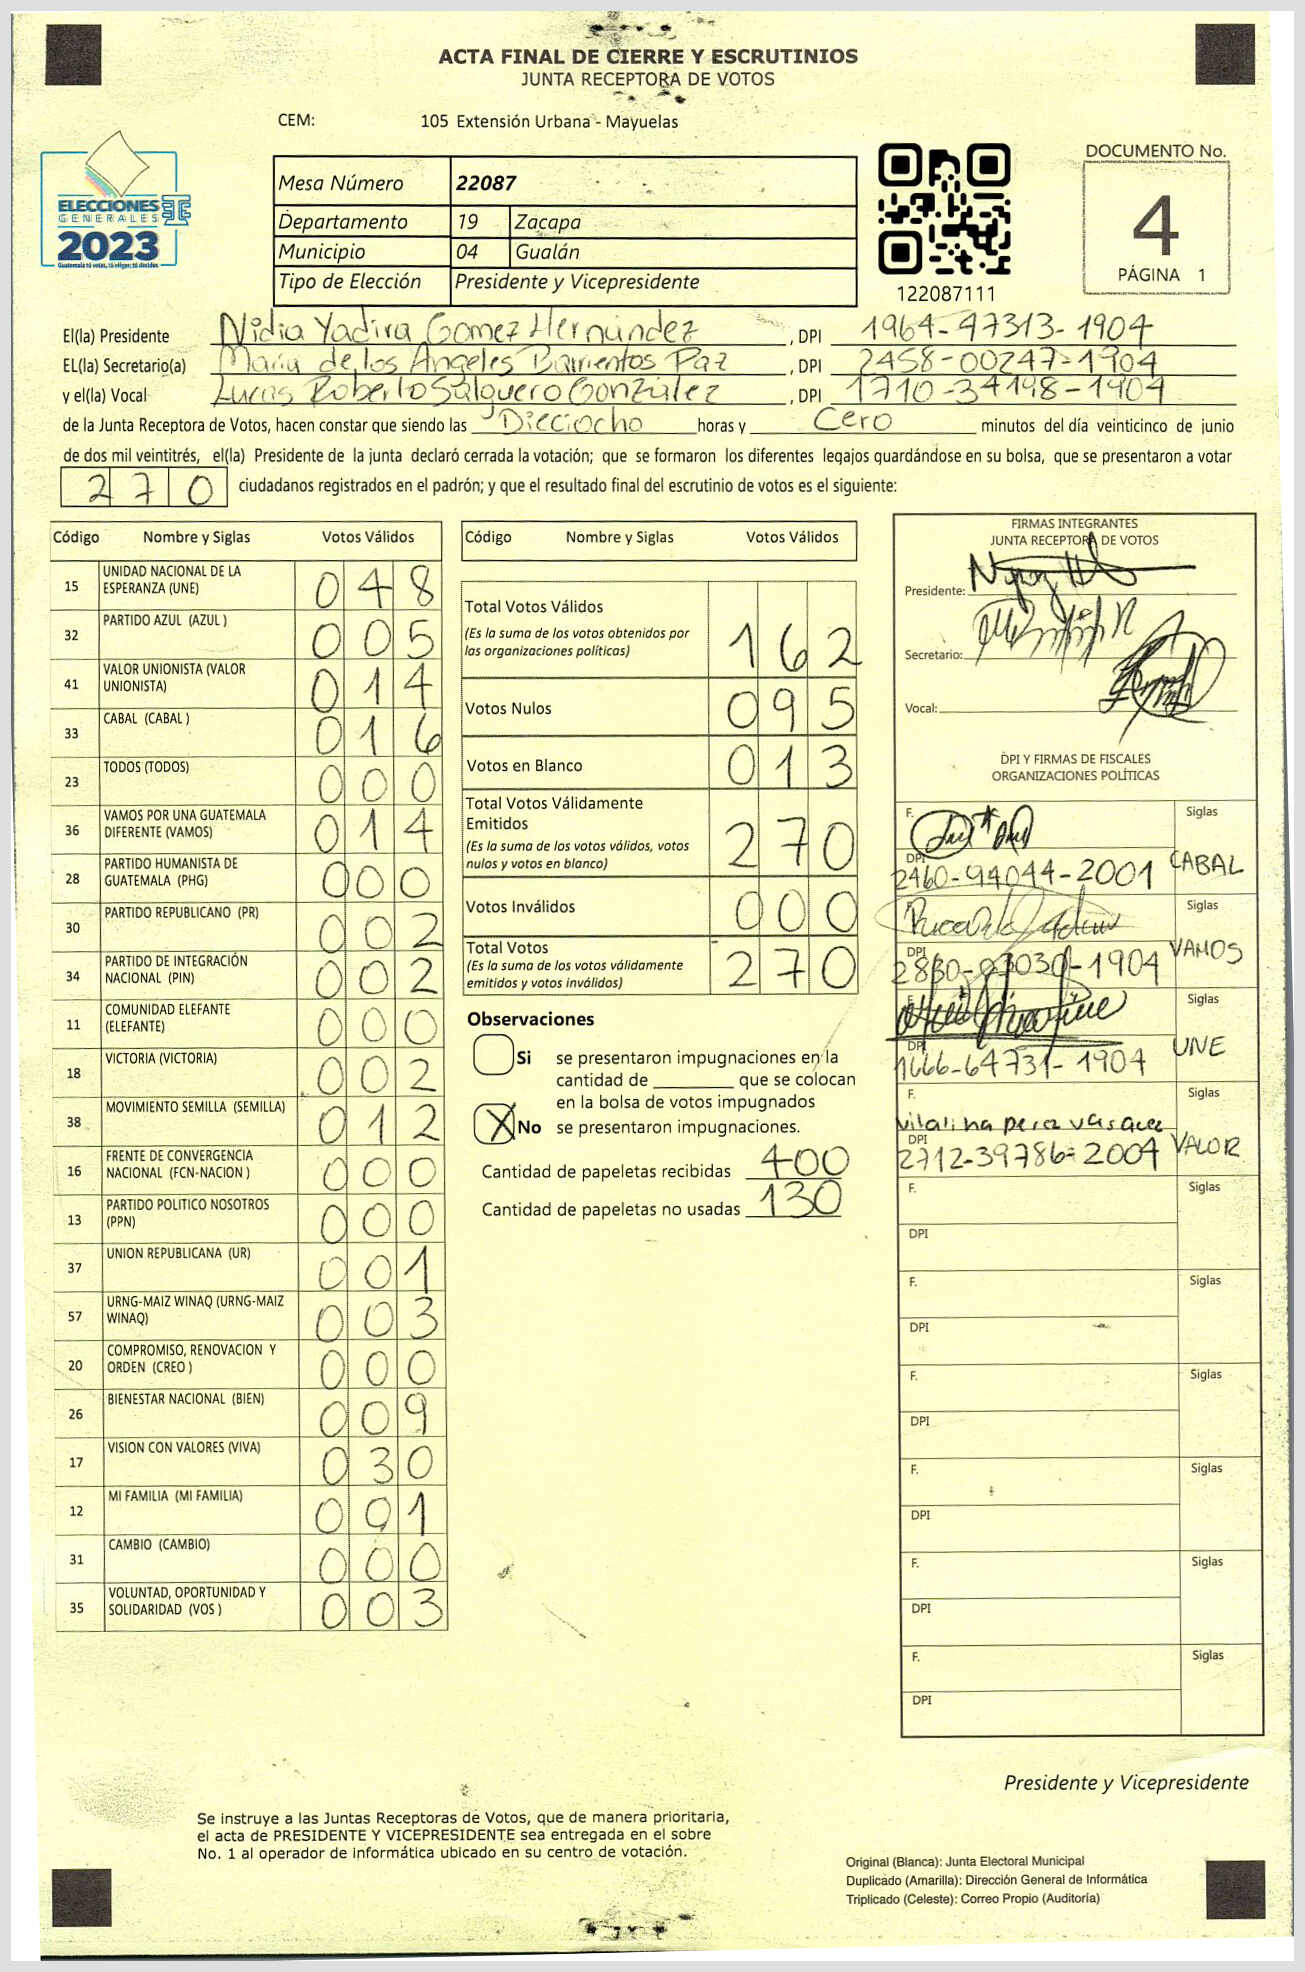 ACTA FINAL DE CIERRE Y ESCRUTINIOS
JUNTA RECEPTORA DE VOTOS
CEM: 105 Extensión Urbana - Mayuelas
ELECCIONES
GENERALES
2023
Guatemala tú votas, tú eliges, tú decides
Mesa Número 22087
Departamento 19 Zacapa
Municipio 04 Gualán
Tipo de Elección Presidente y Vicepresidente
122087111
DOCUMENTO No.
4
PÁGINA 1
El(la) Presidente Nidia Yadira Gomez Hernández, DPI 1964-47313-1904
EL(la) Secretario(a) María de los Angeles Barrientos Paz, DPI 2458-00247-1904
y el(la) Vocal Lucas Roberto Salguero González, DPI 1710-34198-1904
de la Junta Receptora de Votos, hacen constar que siendo las Dieciocho horas y Cero minutos del día veinticinco de junio
de dos mil veintitrés, el(la) Presidente de la junta declaró cerrada la votación; que se formaron los diferentes legajos quardándose en su bolsa, que se presentaron a votar
270 ciudadanos registrados en el padrón; y que el resultado final del escrutinio de votos es el siguiente:
Código Nombre y Siglas Votos Válidos
15 UNIDAD NACIONAL DE LA ESPERANZA (UNE) 048
32 PARTIDO AZUL (AZUL ) 005
41 VALOR UNIONISTA (VALOR UNIONISTA) 014
33 CABAL (CABAL ) 016
23 TODOS (TODOS) 000
36 VAMOS POR UNA GUATEMALA DIFERENTE (VAMOS) 014
28 PARTIDO HUMANISTA DE GUATEMALA (PHG) 000
30 PARTIDO REPUBLICANO (PR) 002
34 PARTIDO DE INTEGRACIÓN NACIONAL (PIN) 002
11 COMUNIDAD ELEFANTE (ELEFANTE) 000
18 VICTORIA (VICTORIA) 002
38 MOVIMIENTO SEMILLA (SEMILLA) 012
16 FRENTE DE CONVERGENCIA NACIONAL (FCN-NACION ) 000
13 PARTIDO POLITICO NOSOTROS (PPN) 000
37 UNION REPUBLICANA (UR) 001
57 URNG-MAIZ WINAQ (URNG-MAIZ WINAQ) 003
20 COMPROMISO, RENOVACION Y ORDEN (CREO ) 000
26 BIENESTAR NACIONAL (BIEN) 009
17 VISION CON VALORES (VIVA) 030
12 MI FAMILIA (MI FAMILIA) 001
31 CAMBIO (CAMBIO) 000
35 VOLUNTAD, OPORTUNIDAD Y SOLIDARIDAD (VOS ) 003
Código Nombre y Siglas Votos Válidos
Total Votos Válidos 162
(Es la suma de los votos obtenidos por
las organizaciones políticas)
Votos Nulos 095
Votos en Blanco 013
Total Votos Válidamente
Emitidos 270
(Es la suma de los votos válidos, votos
nulos y votos en blanco)
Votos Inválidos 000
Total Votos 270
(Es la suma de los votos válidamente
emitidos y votos inválidos)
Observaciones
Si se presentaron impugnaciones en la
cantidad de ________ que se colocan
en la bolsa de votos impugnados
X No se presentaron impugnaciones.
Cantidad de papeletas recibidas 400
Cantidad de papeletas no usadas 130
FIRMAS INTEGRANTES
JUNTA RECEPTORA DE VOTOS
Presidente:
Secretario:
Vocal:
DPI Y FIRMAS DE FISCALES
ORGANIZACIONES POLÍTICAS
F. Siglas
DPI 2460-94044-2001 CABAL
Siglas
DPI 2880-03030-1904 VAMOS
F. Siglas
DPI 1666-64731-1904 UNE
F. Siglas
DPI 2712-39786-2004 VALOR
F. Siglas
DPI
F. Siglas
DPI
F. Siglas
DPI
F. Siglas
DPI
F. Siglas
DPI
F. Siglas
DPI
Presidente y Vicepresidente
Se instruye a las Juntas Receptoras de Votos, que de manera prioritaria,
el acta de PRESIDENTE Y VICEPRESIDENTE sea entregada en el sobre
No. 1 al operador de informática ubicado en su centro de votación.
Original (Blanca): Junta Electoral Municipal
Duplicado (Amarilla): Dirección General de Informática
Triplicado (Celeste): Correo Propio (Auditoría)